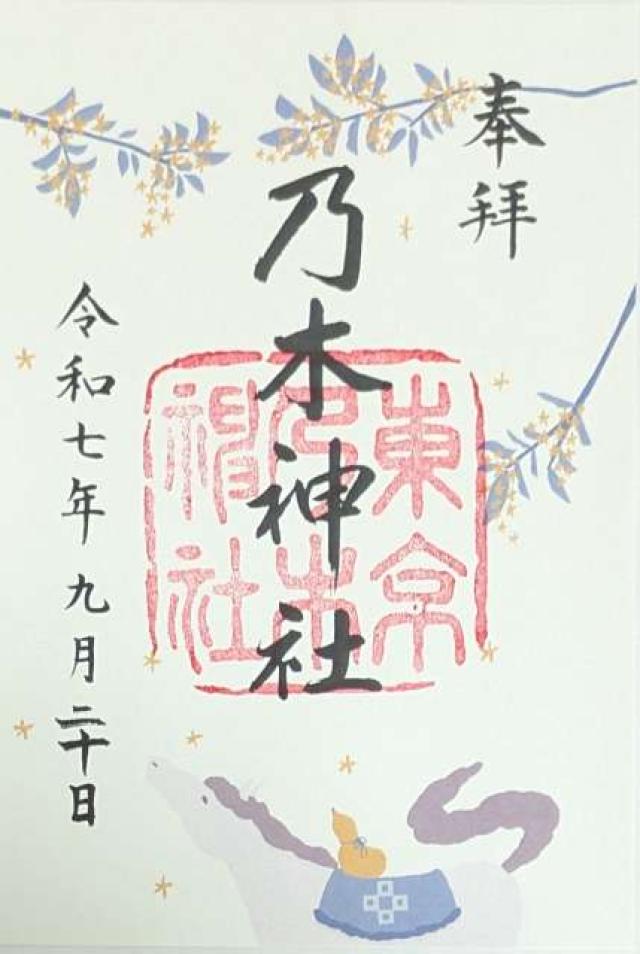 奉拝
乃木神社
東京
乃木
神社
令和七年九月二十日